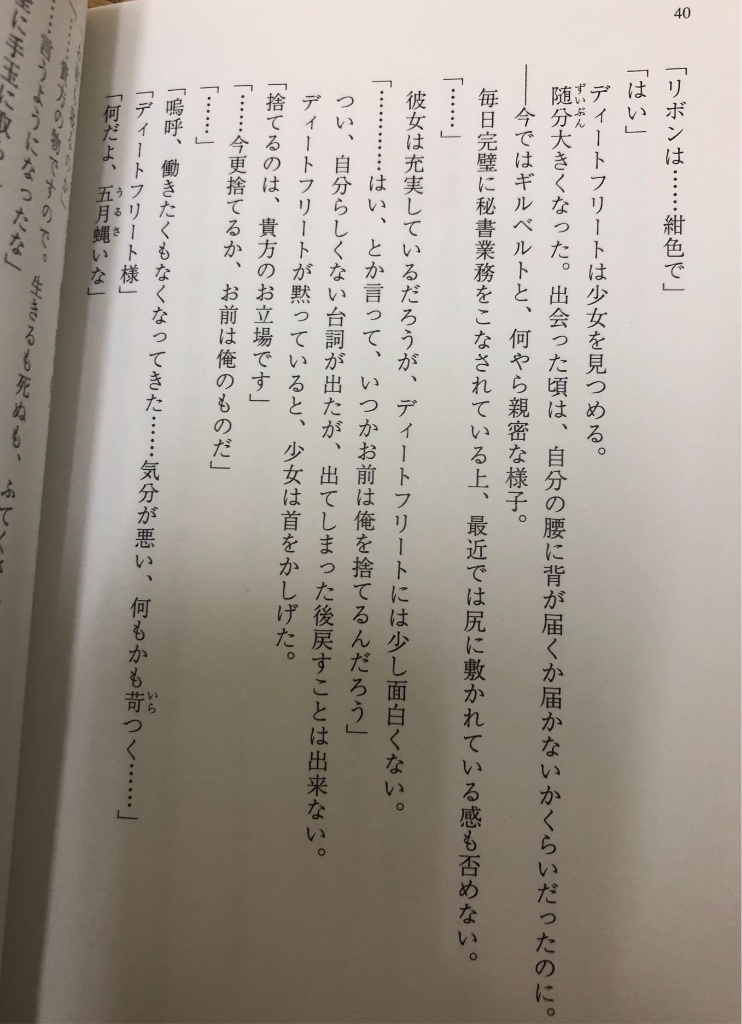 40
「リボンは……紺色で」
「はい」
ディートフリートは少女を見つめる。
随分大きくなった。出会った頃は、自分の腰に背が届くか届かないかくらいだったのに。
ずいぶん
――今ではギルベルトと、何やら親密な様子。
毎日完璧に秘書業務をこなされている上、最近では尻に敷かれている感も否めない。
「……」
彼女は充実しているだろうが、ディートフリートには少し面白くない。
「…………はい、とか言って、いつかお前は俺を捨てるんだろう」
つい、自分らしくない台詞が出たが、出てしまった後戻すことは出来ない。
ディートフリートが黙っていると、少女は首をかしげた。
「捨てるのは、貴方のお立場です」
「……今更捨てるか、お前は俺のものだ」
「……」
「嗚呼、働きたくもなくなってきた……気分が悪い、何もかも苛つく……」
いら
「ディートフリート様」
「何だよ、五月蝿いな」
うるさ
貴方の物ですので。生きるも死ぬも、
……言うようになったな」
に手玉に取